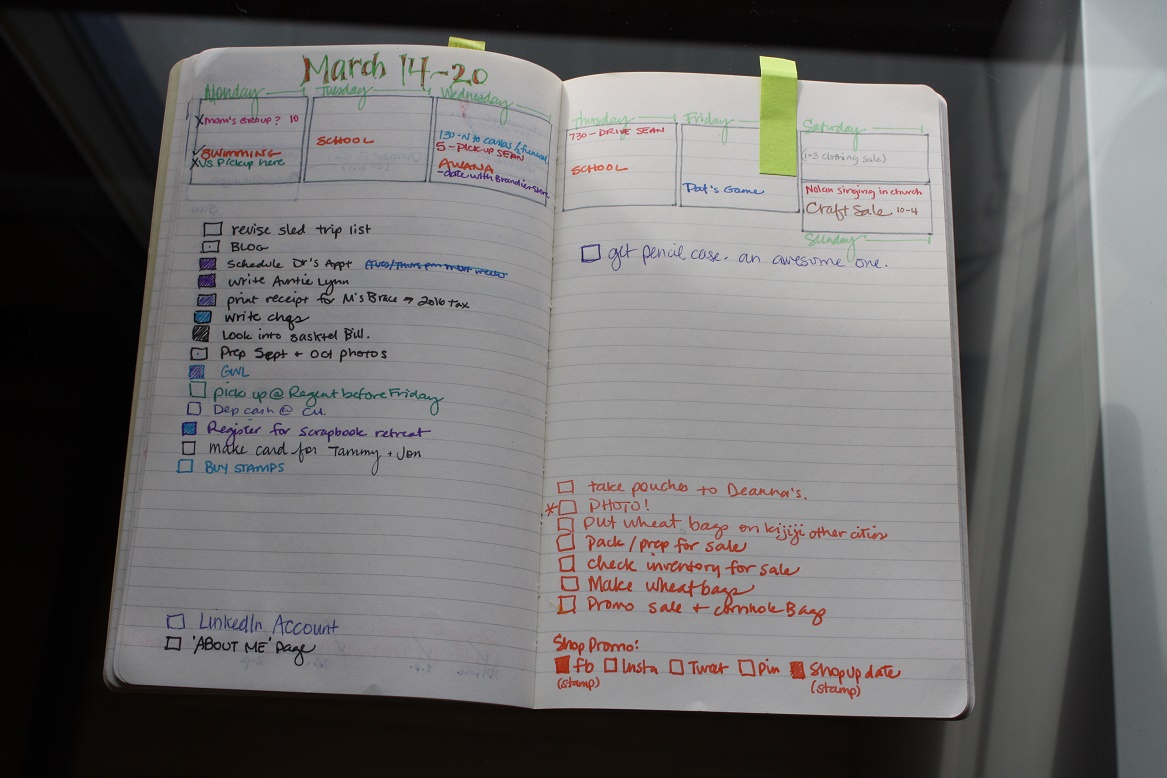 March 14-20
Monday
Mom's Group? 10
SWIMMING
VS Pickup here
Tuesday
SCHOOL
Wednesday
130-N to canvas / funeral
5-PICK UP SEAN
AWANA
-date with Brandi
Thursday
730-DRIVE SEAN
SCHOOL
Friday
Pat's Game
Saturday
(1-3 clothing sale)
Nolan singing in church
Craft Sale 10-4
Sunday
revise sled trip list
BLOG
Schedule Dr's Appt
write Auntie Lynn
print receipt for M's Brace → 2016 tax
write chqs
Look into sasktel Bill.
Prep Sept + Oct photos
GWL
pick up @ Regent before Friday
Dep cash @ CU.
Register for scrapbook retreat
make card for Tammy + Jon
BUY STAMPS
LinkedIn Account
'ABOUT ME' page
get pencil case. an awesome one.
take pouches to Deanna's.
* PHOTO!
put wheat bags on kijiji other cities
Pack / prep for sale
check inventory for sale
Make wheatbags
Promo sale + cornhole Bags
Shop Promo:
fb Insta Tweet Pin Shop update
(stamp) (stamp)